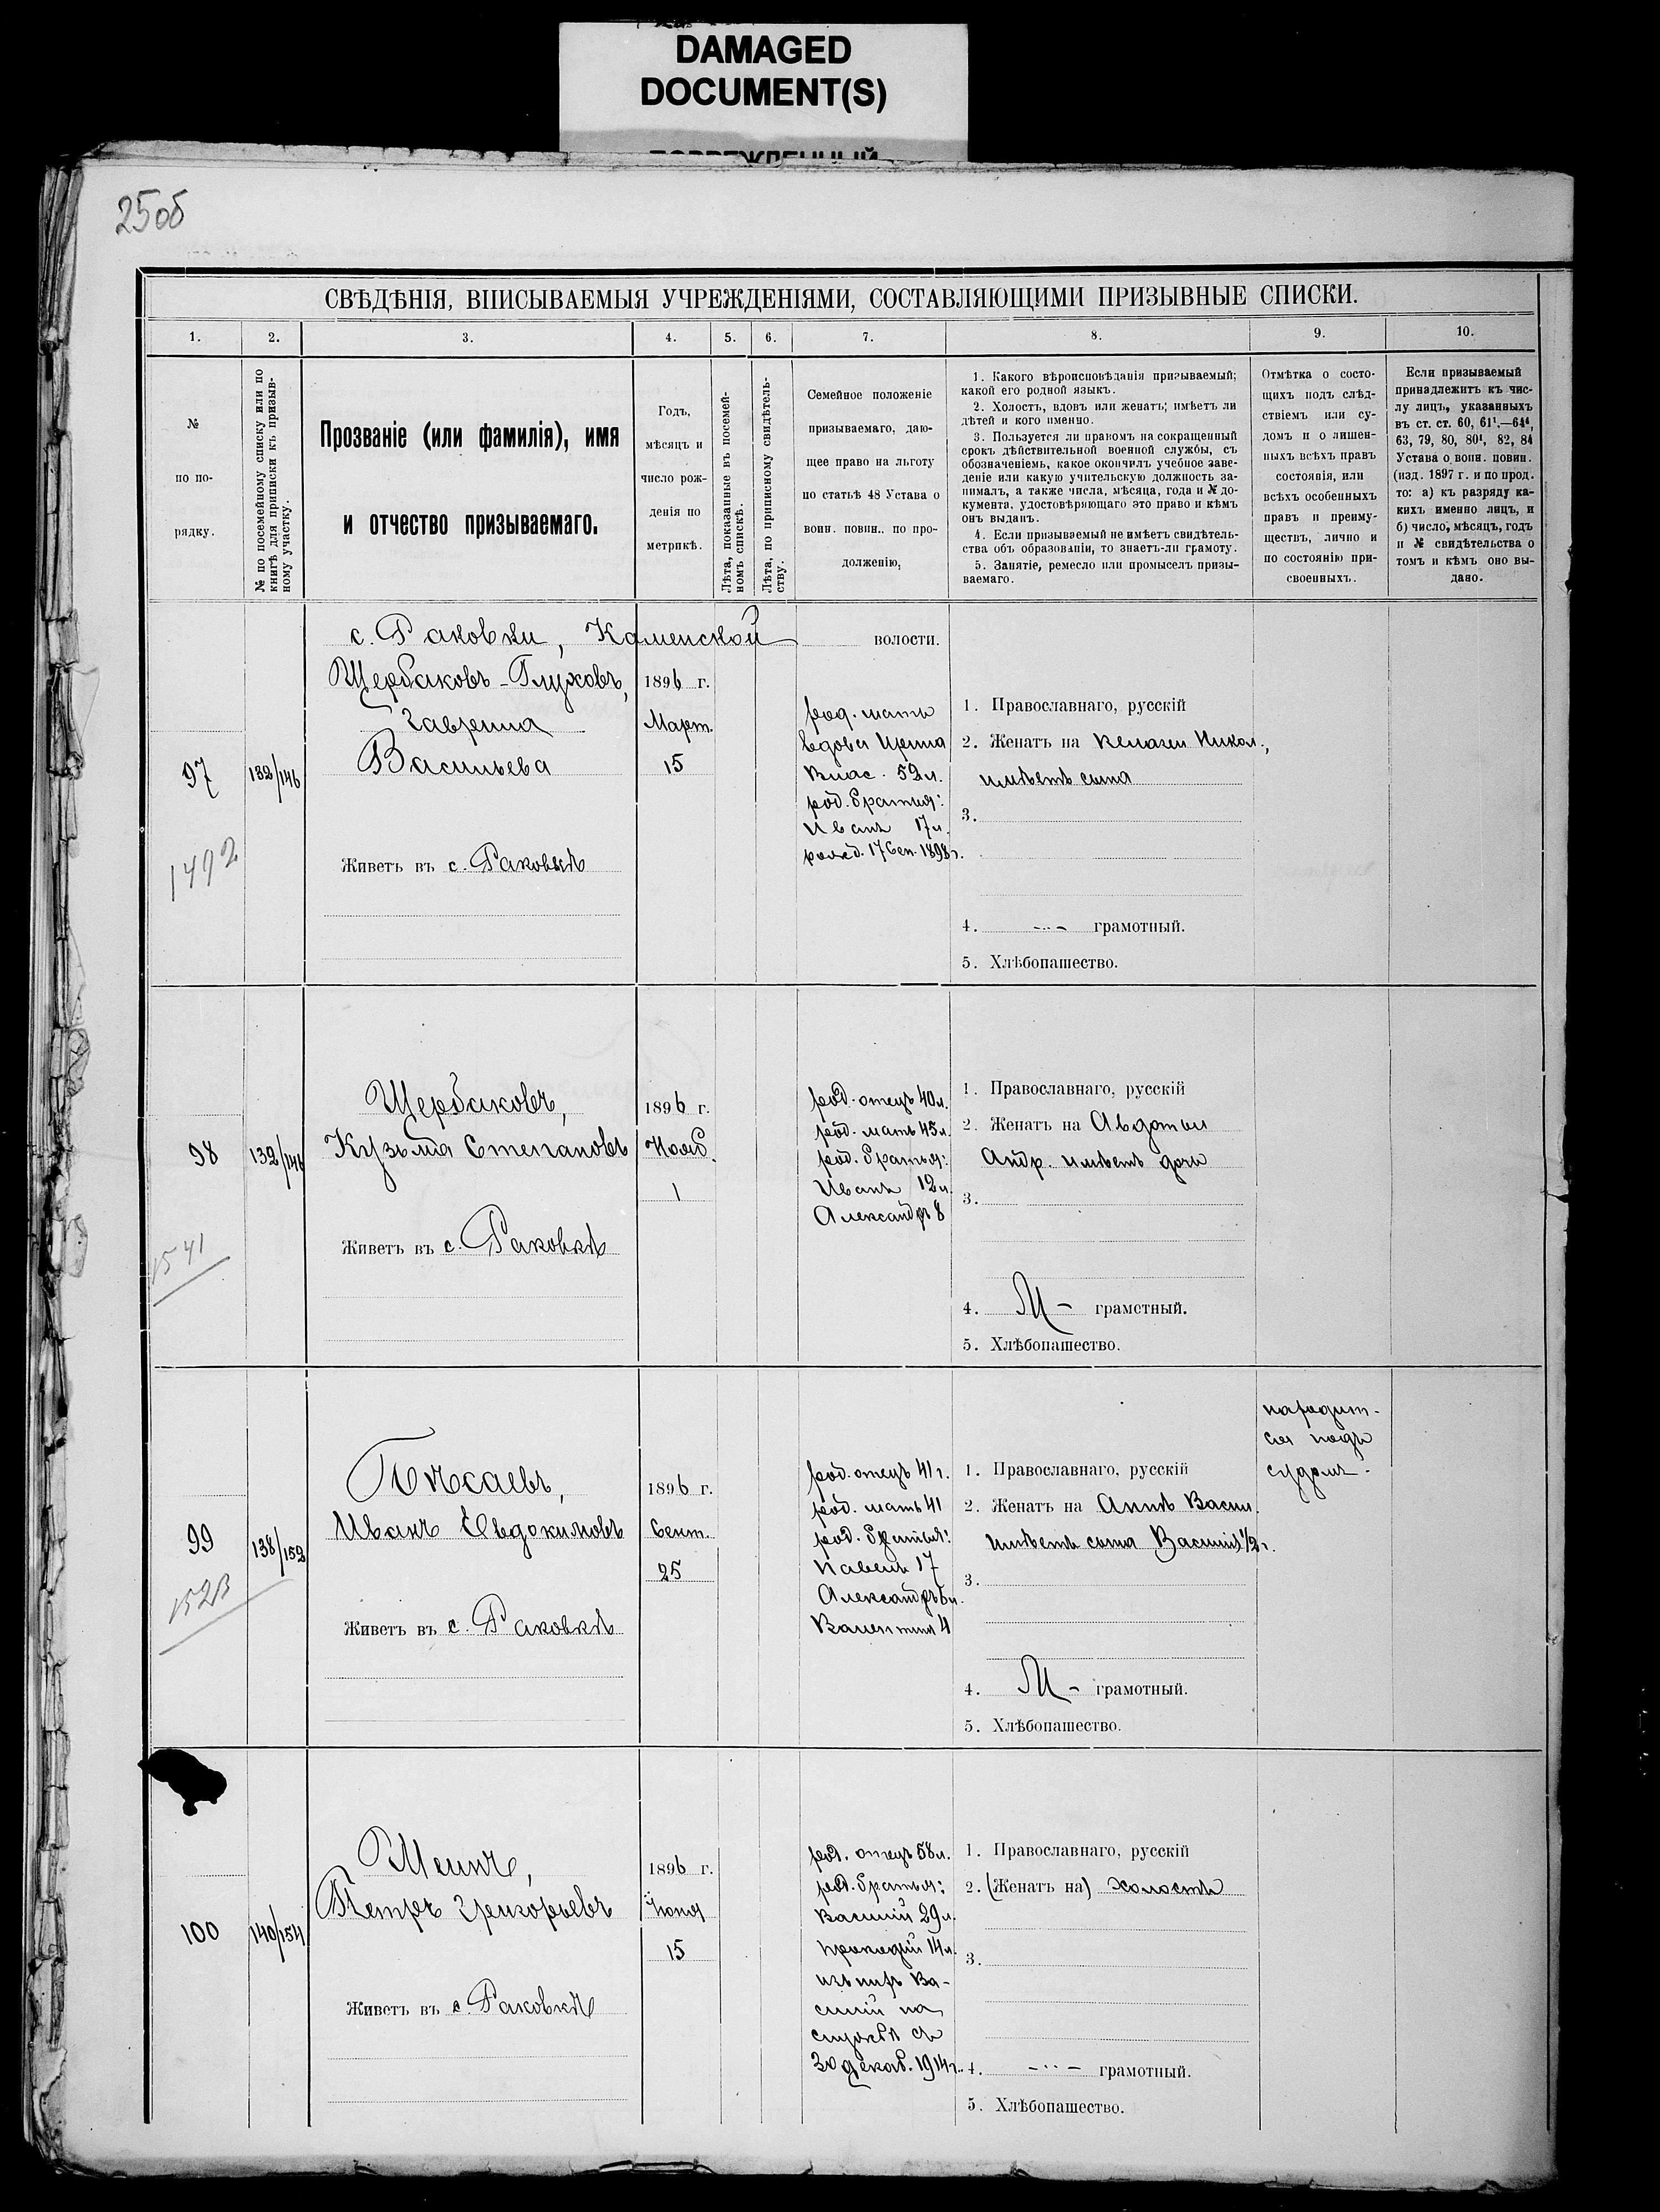 DAMAGED
DOCUMENT(S)
25об
СВѢДѢНІЯ, ВПИСЫВАЕМЫЯ УЧРЕЖДЕНІЯМИ, СОСТАВЛЯЮЩИМИ ПРИЗЫВНЫЕ СПИСКИ.
1. 2. 3. 4. 5. 6. 7. 8. 9. 10.
№
по по-
рядку.
№ по посемейному списку или по
книгѣ для приписки къ призыв-
ному участку.
Прозваніе (или фамилія), имя
и отчество призываемаго.
Годъ,
мѣсяцъ и
число рож-
денія по
метрикѣ.
Лѣта, показанные въ посемей-
номъ спискѣ.
Лѣта, по приписному свидѣтель-
ству.
Семейное положеніе
призываемаго, даю-
щее право на льготу
по статьѣ 48 Устава о
воин. повин.. по про-
долженію,
1. Какого вѣроисповѣданія призываемый;
какой его родной языкъ.
2. Холостъ, вдовъ или женатъ; имѣетъ ли
дѣтей и кого именно.
3. Пользуется ли правомъ на сокращенный
срокъ дѣйствительной военной службы, съ
обозначеніемъ, какое окончилъ учебное заве-
деніе или какую учительскую должность за-
нималъ, а также числа, мѣсяца, года и № до-
кумента, удостовѣряющаго это право и кѣмъ
онъ выданъ.
4. Если призываемый не имѣетъ свидѣтель-
ства объ образованіи, то знаетъ-ли грамоту.
5. Занятіе, ремесло или промыселъ призы-
ваемаго.
Отмѣтка о состо-
щихъ подъ слѣд-
ствіемъ или су-
домъ и о лишен-
ныхъ всѣхъ правъ
состоянія, или
всѣхъ особенныхъ
правъ и преиму-
ществъ, лично и
по состоянію при-
своенныхъ.
Если призываемый
принадлежитъ къ чис-
лу лицъ, указанныхъ
въ ст. ст. 60, 61¹.—64⁴,
63, 79, 80, 80¹, 82, 84
Устава о воин. повин.
(изд. 1897 г. и по прод.
то: а) къ разряду ка-
кихъ именно лицъ, и
б) число, мѣсяцъ, годъ
и № свидѣтельства о
томъ и кѣмъ оно вы-
дано.
с. Раковки, Каменской волости.
97
1492
132/146
Щербаковъ-Глуховъ,
Гаврiила
Васильева
Живетъ въ с. Раковкѣ
1896 г.
Март.
15
род. мать
вдова Ирина
Влас. 52 л.
род. братья:
Иванъ 17 л.
рожд. 17 Сен. 1898 г.
1. Православнаго, русскій
2. Женатъ на Пелагеи Никол.,
имѣетъ сына
3.
4. -··- грамотный.
5. Хлѣбопашество.
98
1541
132/146
Щербаковъ,
Кузьма Степановъ
Живетъ въ с. Раковкѣ
1896 г.
Нояб.
1
род. отецъ 40 л.
род. мать 45 л.
род. братья:
Иванъ 12 л.
Александръ 8
1. Православнаго, русскій
2. Женатъ на Авдотьи
Андр. имѣетъ дочь
3.
4. М - грамотный.
5. Хлѣбопашество.
99
138/152
Иванъ Евдокимовъ
Живетъ въ с. Раковкѣ
1896 г.
Сент.
25
род. отецъ 41 г.
род. мать 41
род. братья:
Павелъ 17
Александръ 6 л.
Валентинъ 4
1. Православнаго, русскій
2. Женатъ на Аннѣ Васил.
имѣетъ сына Василія 1/2 г.
3.
4. М - грамотный.
5. Хлѣбопашество.
находит-
ся подъ
судомъ.
100
140/154
Петръ Григорьевъ
Живетъ въ с. Раковкѣ
1896 г.
Іюня
15
род. отецъ 58 л.
род. братья:
Василій 29 л.
14 л.
изъ нихъ Ва-
силій на
службѣ съ
30 декаб. 1914 г.
1. Православнаго, русскій
2. (Женатъ на) холостъ
3.
4. -··- грамотный.
5. Хлѣбопашество.